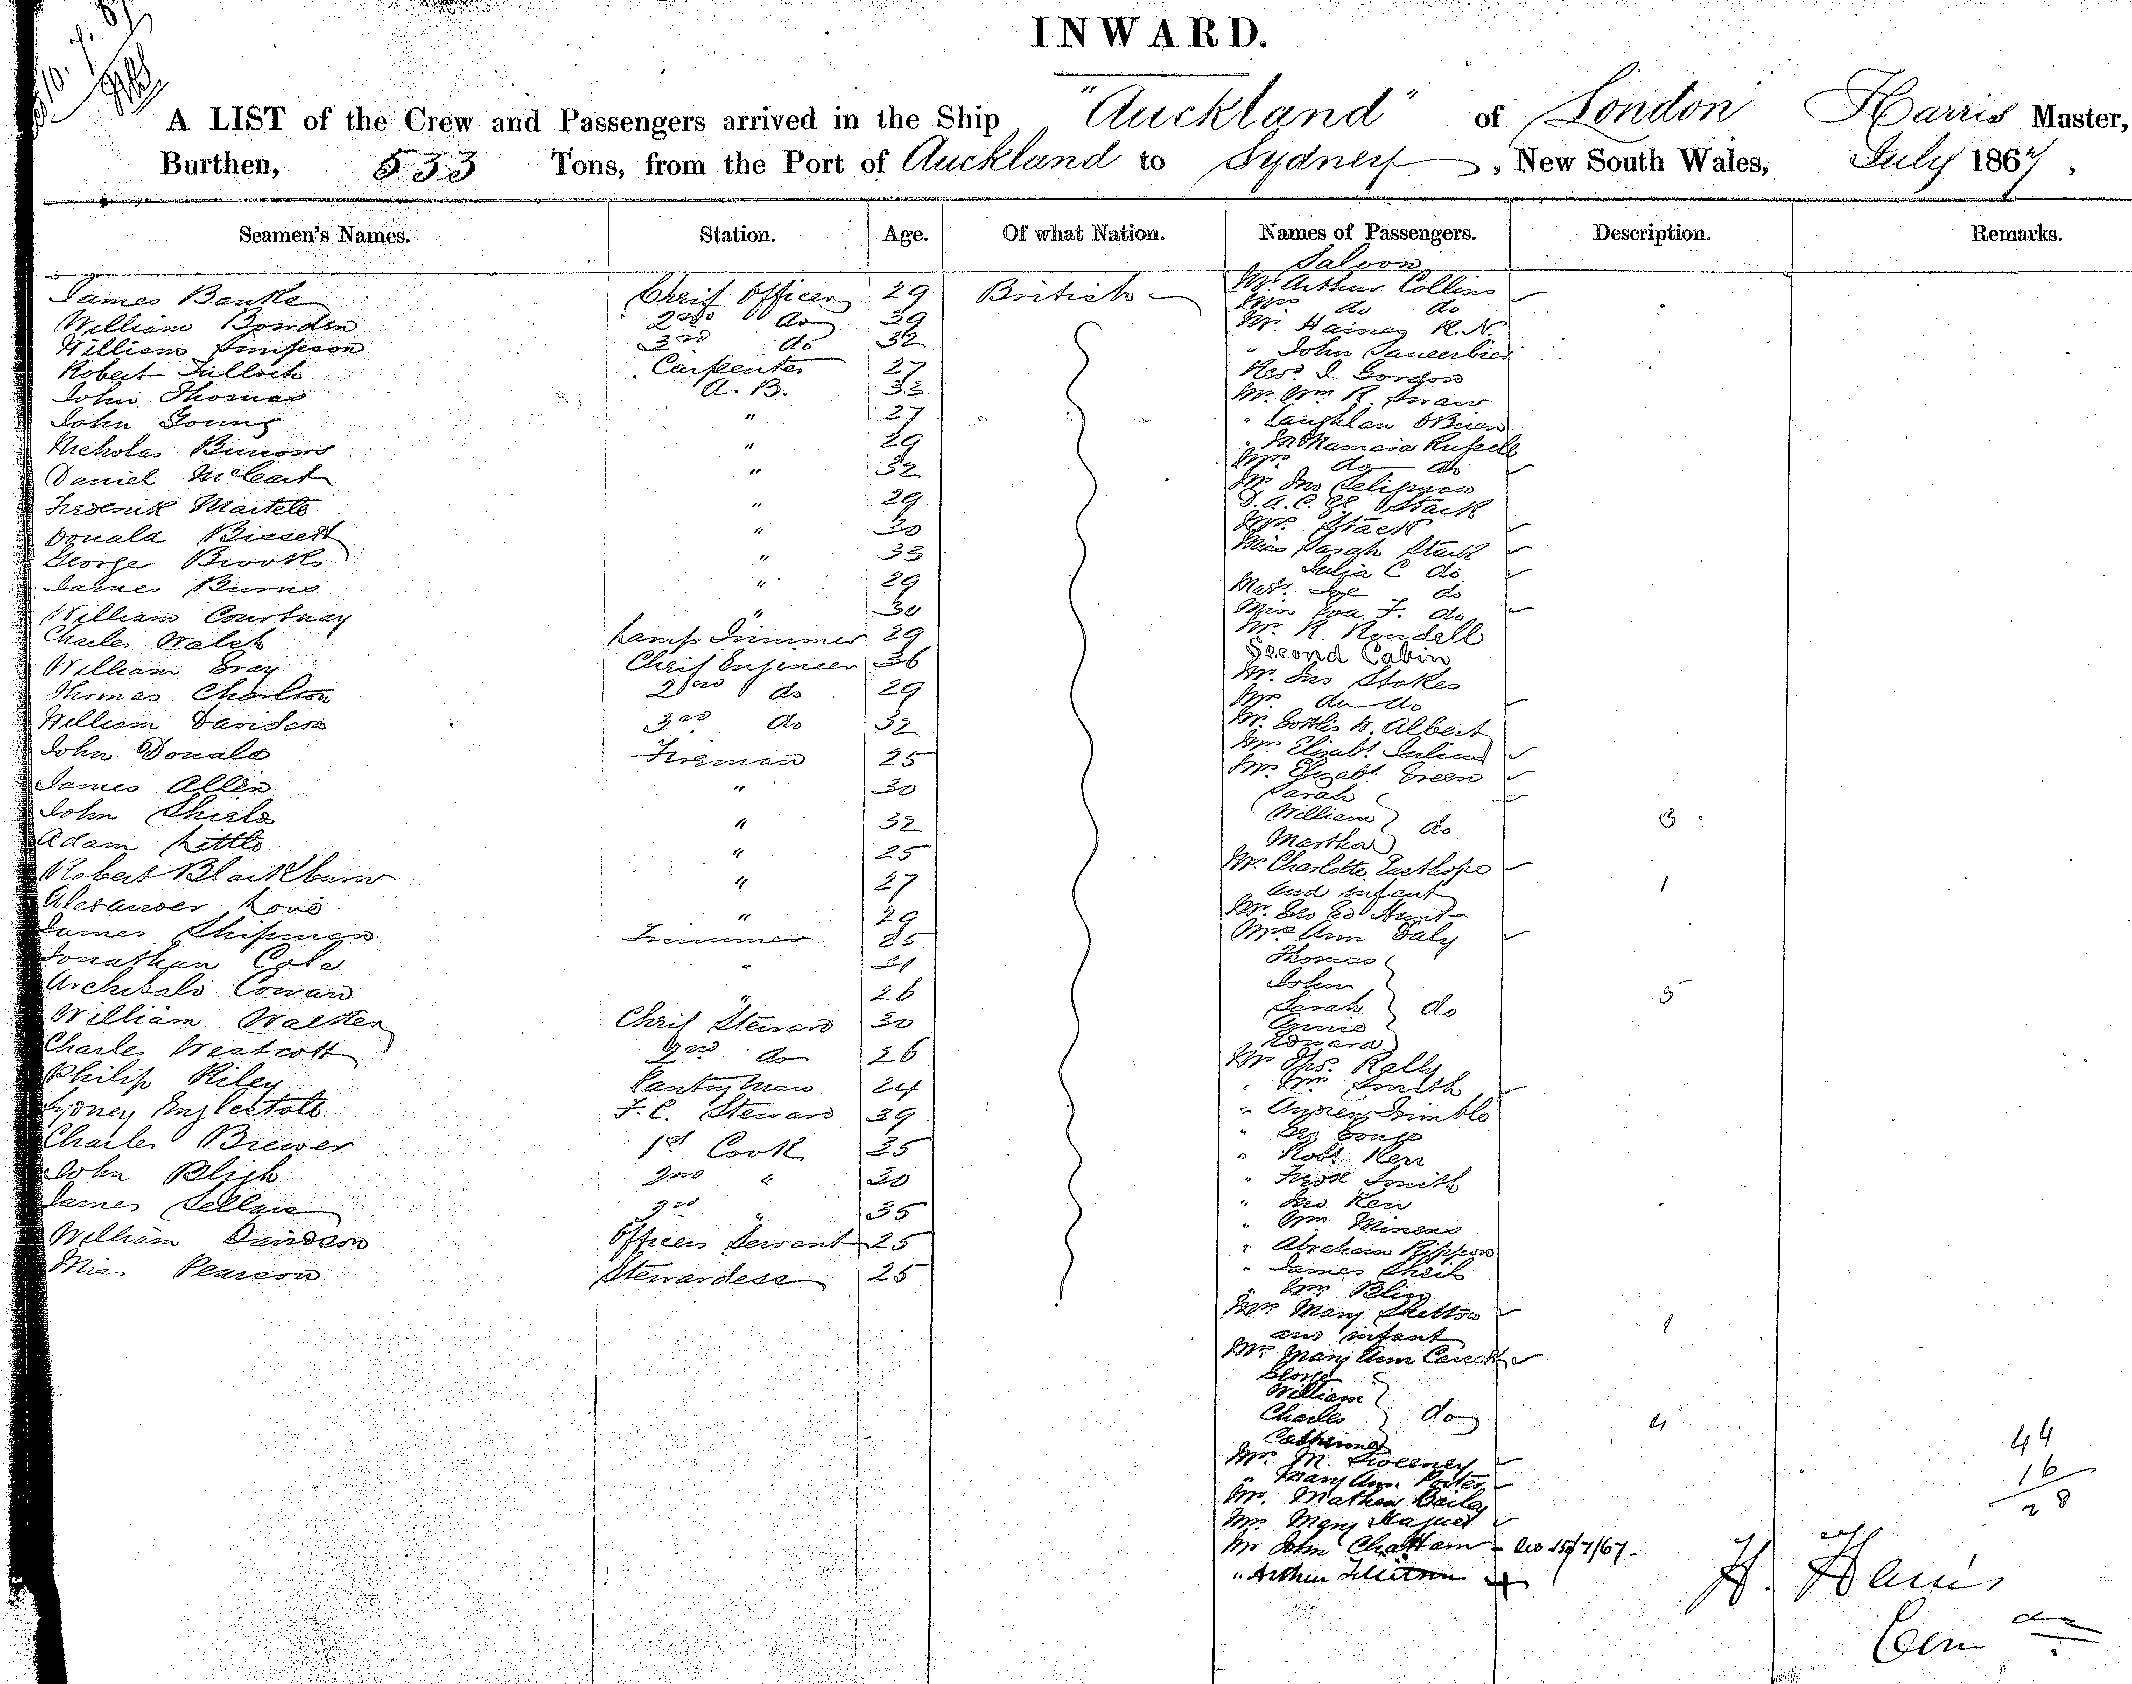 INWARD.
A LIST of the Crew and Passengers arrived in the Ship "Auckland" of London Harris Master,
Burthen, 533 Tons, from the Port of Auckland to Sydney, New South Wales, July 1867.
Seamen's Names. Station. Age. Of what Nation. Names of Passengers. Description. Remarks.
Saloon
James Banks Chief Officer 29 British Mr. Arthur Collins
Mrs do do
William Bowden 2nd do 39 Mr. Haines R.N.
William Simpson 3rd do 32 " John
Robert Tulloch Carpenter 27 Revd Gordon
John Thomas A. B. 32 Mr. Wm R.
John Young " 27 " Laughlan O'Brien
Nicholas Burrows " 29 " Russell
Mrs do do
Daniel " 32 Mr Jno Seligman
Frederick Martell " 29 D. A. C. Gl Stack
Donald Bissett " 30 Mrs. Stack
George Brooks " 33 Miss Sarah Stack
James Burns " 29 Julia C do
William Courtnay " 30 do
Miss Eva F. do
Charles Walsh Lamp Trimmer 29 Mr. R. Rendell
William Gray Chief Engineer 36 Second Cabin
Mr. Jas Stokes
Thomas Charlton 2nd do 29 Mrs do do
William Davidson 3rd do 32 Mr. Gottlieb W. Albert
John Donald Fireman 25 Mrs Elizabt. Julius
James Allen " 30 Mrs. Elizabt. Green
Sarah
John Shiels " 32 William do 3
Adam Little " 25 Martha
Robert Blackburn " 27 Mrs Charlotte Easthope
and infant 1
Alexander Love " 29 Mr. Geo Ed Hunt
James Shipman Trimmer 25 Mrs Ann Daly
Jonathan Cole " 21 Thomas
Archibald Cowan " 26 John
Sarah do 5
William Walker Chief Steward 30 Annie
Edward
Charles Westcott 2nd do 26 Mr Thos. Kelly
Philip Riley Pantry Man 24 " Wm Smith
Sydney F. C. Steward 39 " Andrew Trimble
Charles Brewer 1st Cook 35 " Geo
" Robt Kerr
John Bligh 2nd " 30 " Fredk Smith
James 3rd " 35 " Jno Kerr
" Wm
William Davidson Officers Servant 25 " Abraham
Miss Pearson Stewardess 25 " James Sheil
" Wm
Mrs Mary Shelton
and infant 1
Mrs Mary Ann
George
William
Charles do 4
Catherine
44
16
28
Mrs. M. Sweeney
" Mary Ann Porter
Mr. Mathew Bailey
Mrs Mary
Mr John Chattam 15/7/67
" Arthur
H. Harris